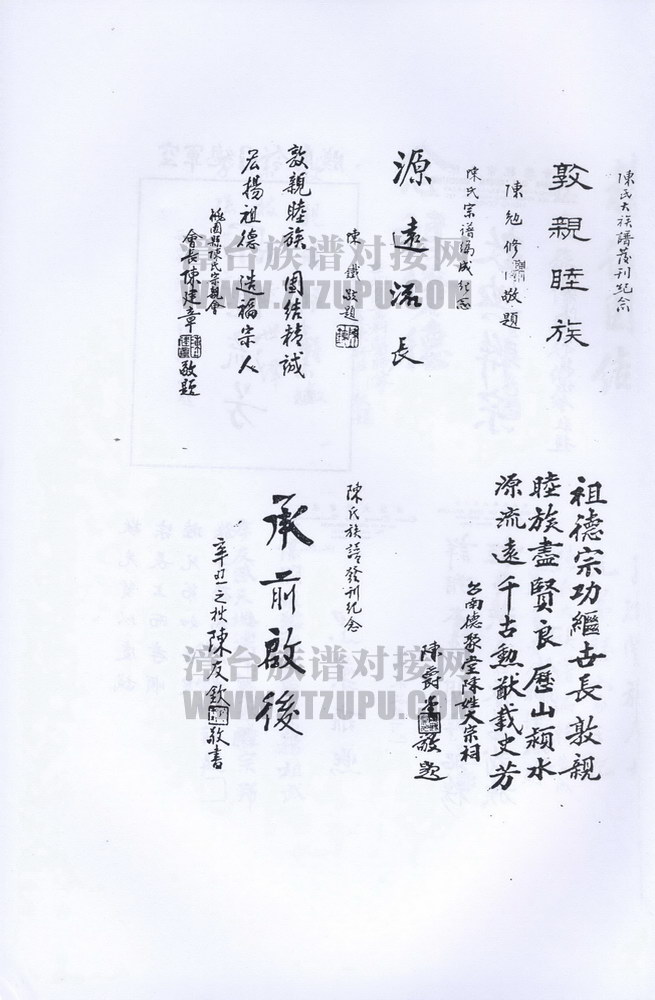 陳氏大族譜發刊紀念
敦親睦族
陳勉修
敬題
陳氏宗譜編成紀念
源遠流長
陳鐵敬題
敦親睦族 團結精誠
宏揚祖德 造福宗人
桃園縣陳氏宗親會
會長陳建章
敬題
祖德宗功繼世長敦親
睦族盡賢良歷山潁水
源流遠千古勲猷載史芳
台南德聚堂陳姓大宗祠
陳爵
敬題
陳氏族譜發刊紀念
承前啟後
辛丑之秋陳友欽
敬書
漳台族谱对接网
WWW.ZTZUPU.COM
漳台族谱对接网
WWW.ZTZUPU.COM